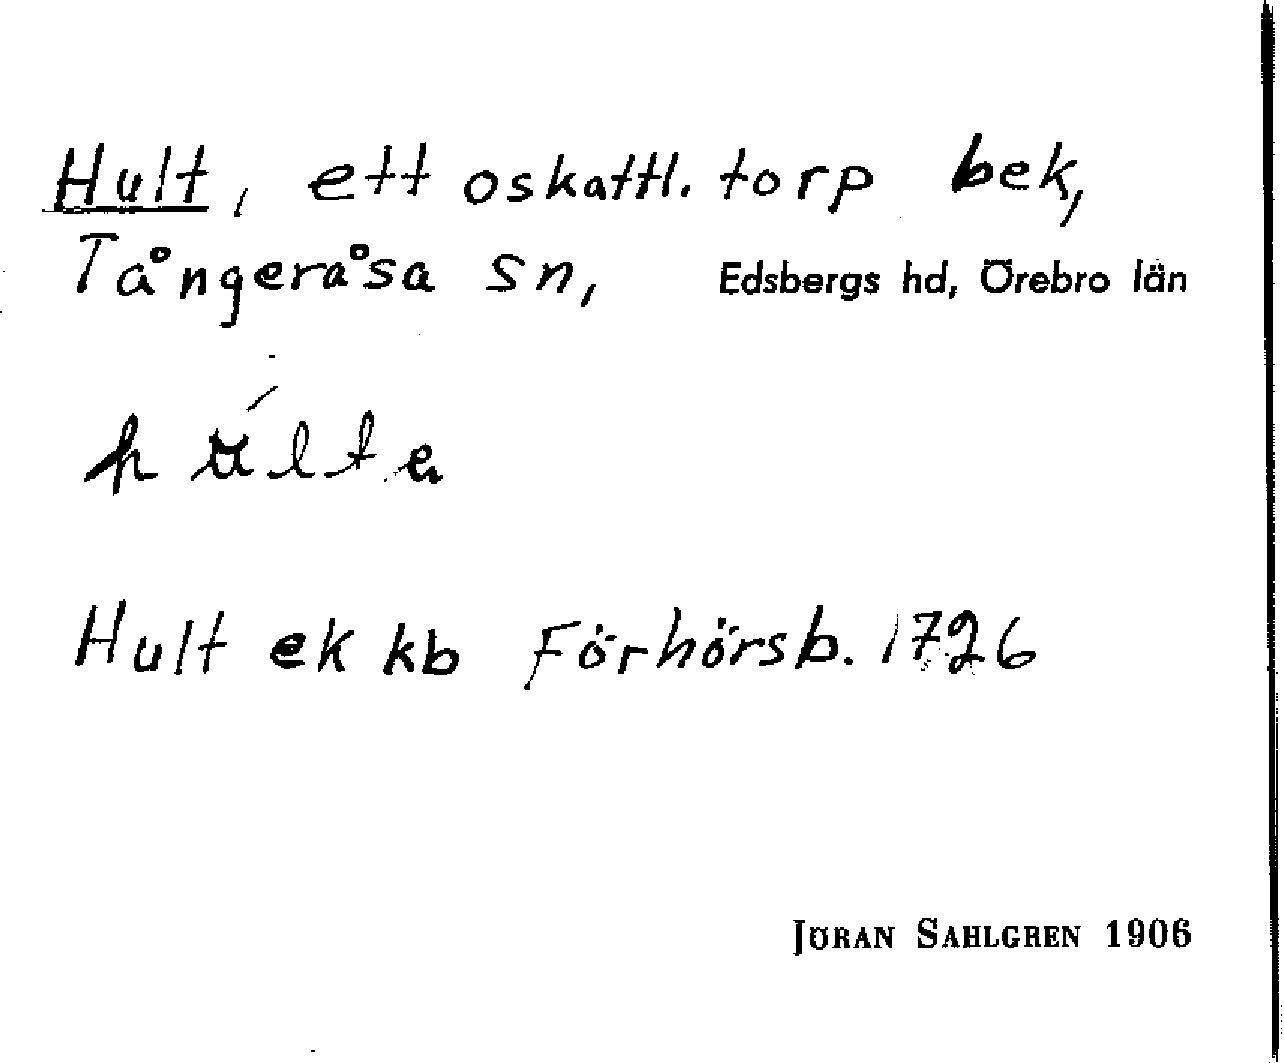 Hult, ett oskattl. torp bek,
Tångeråsa sn, Edsbergs hd, Örebro län
Hult ek kb Förhörsb. 1726
JÖRAN SAHLGREN 1906